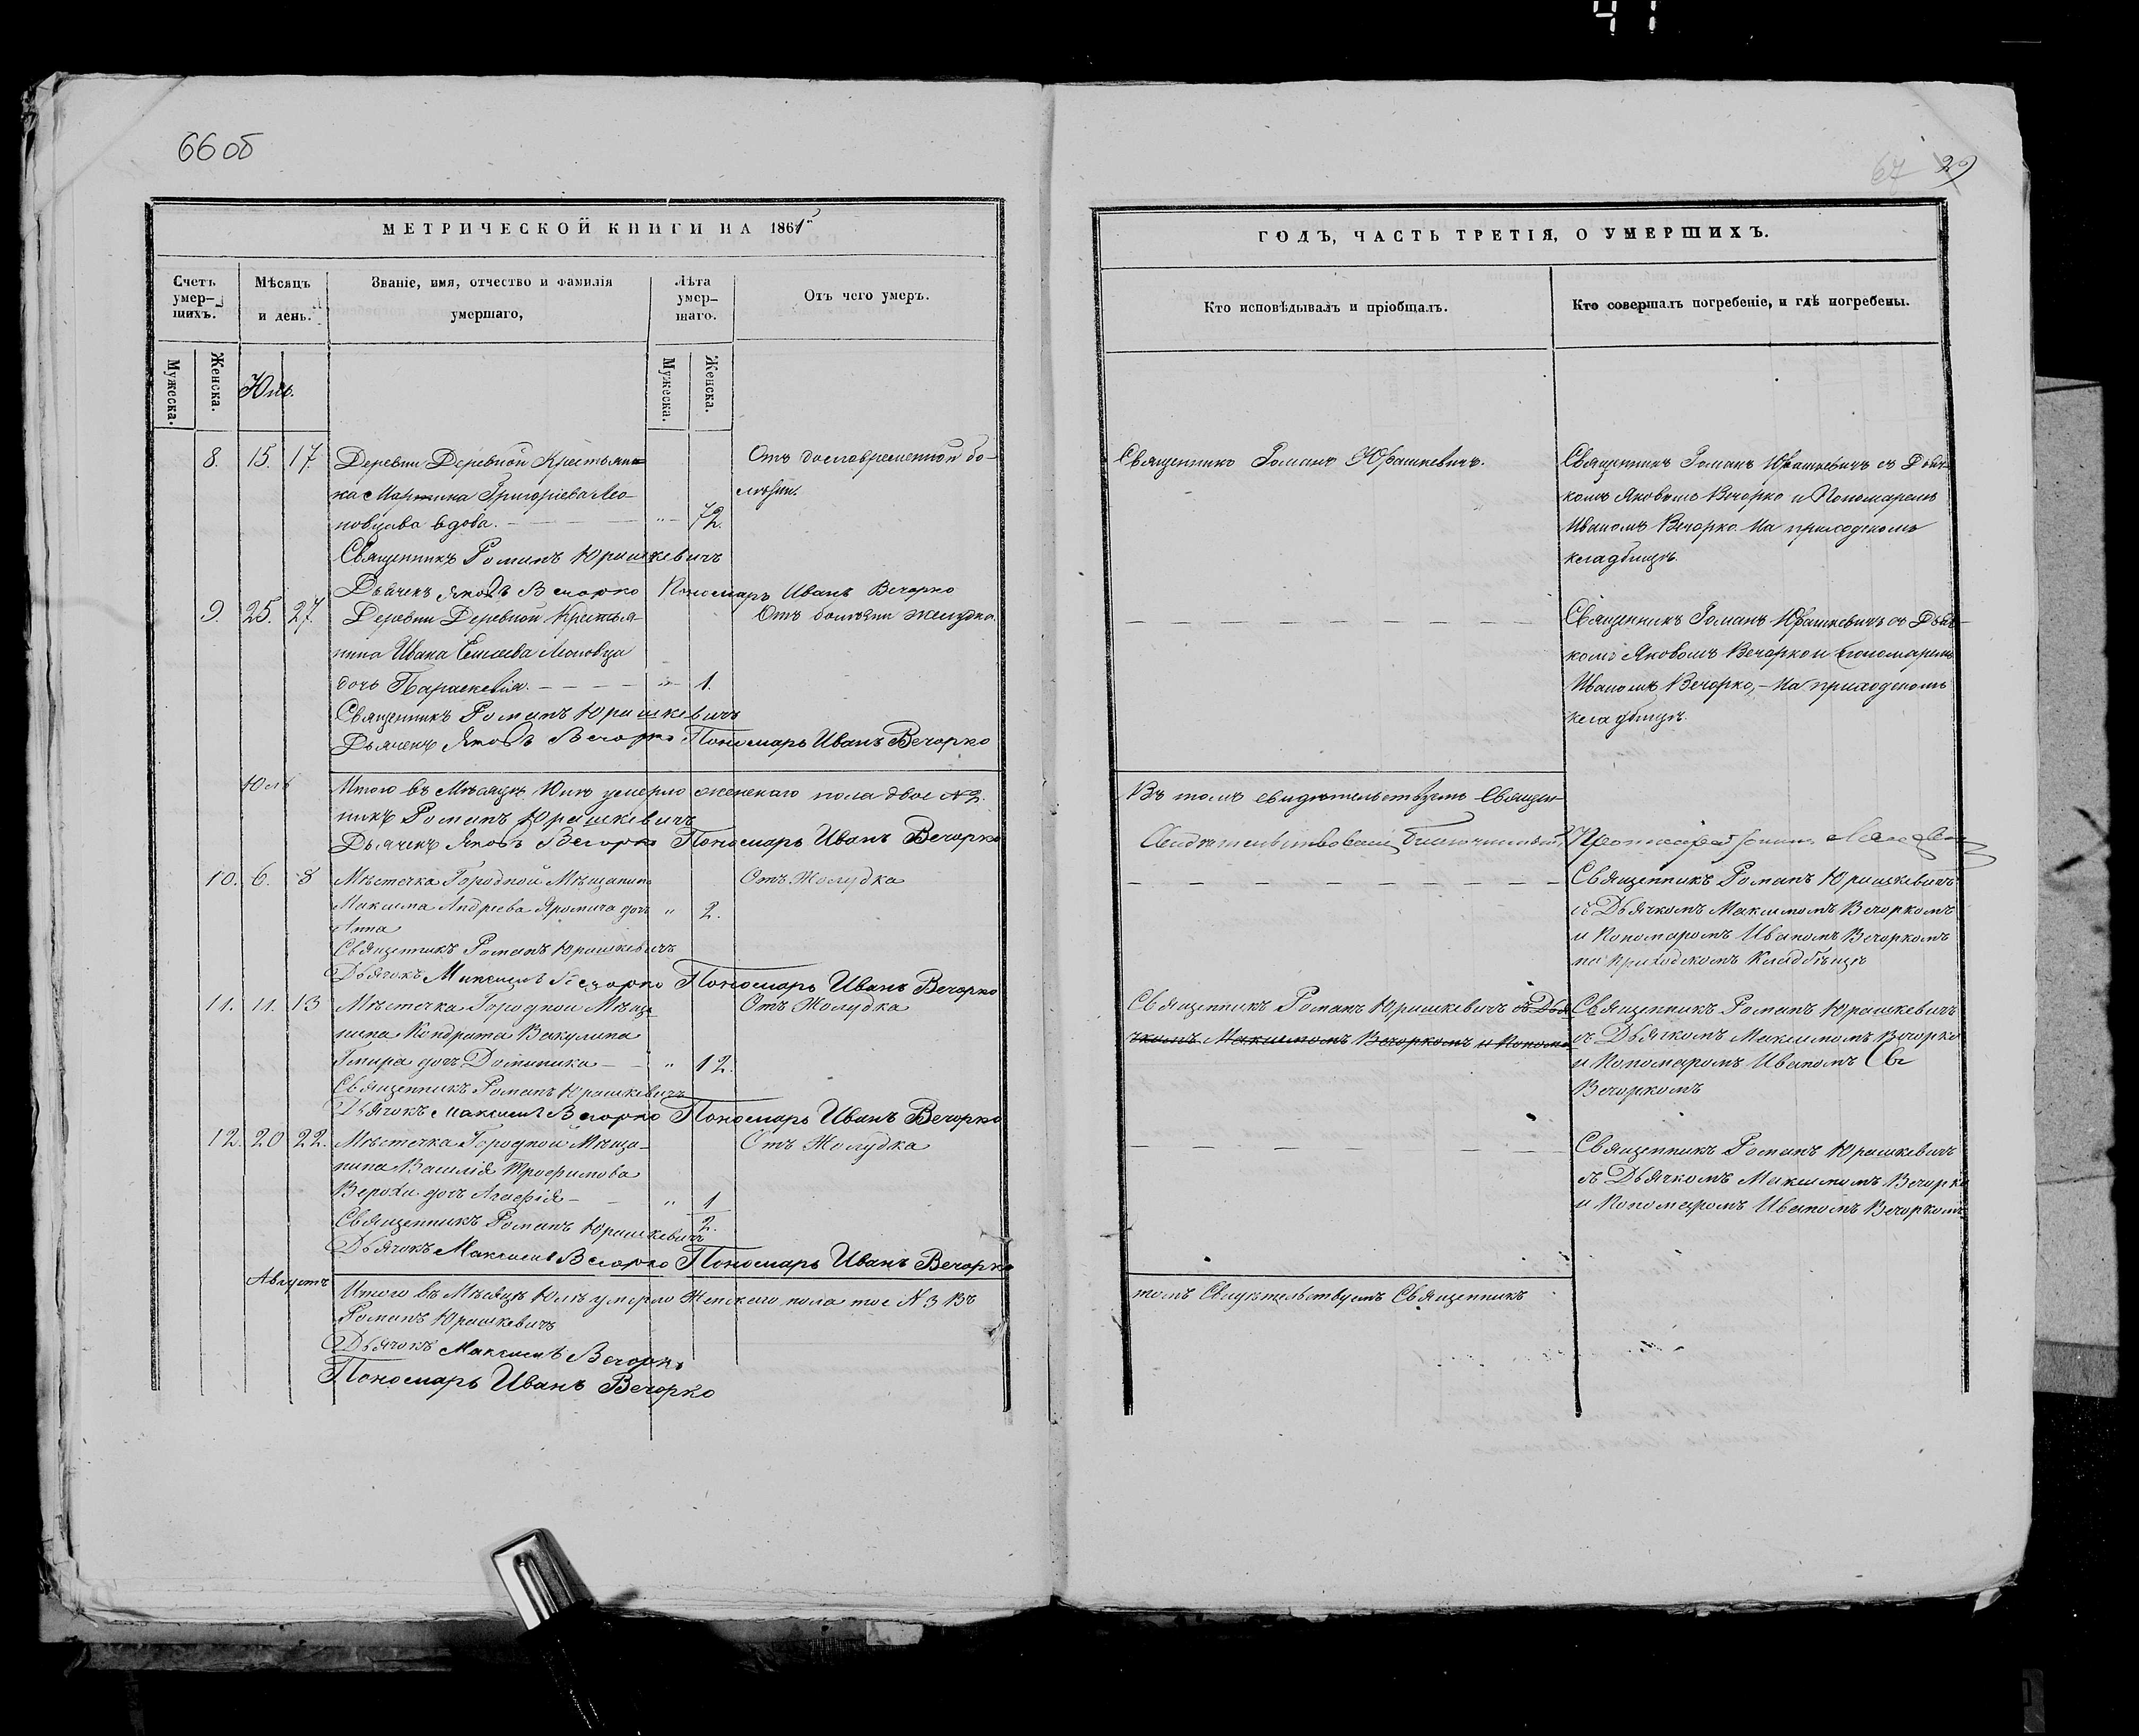 41
66 об
67 29
МЕТРИЧЕСКОЙ КНИГИ НА 1861й
Счетъ умер-шихъ.
Мѣсяцъ и день.
Званіе, имя, отчество и фамилія умершаго,
Лѣта умер-шаго.
Отъ чего умеръ.
Мужеска.
Женска.
Мужеска.
Женска.
Юль.
8. 15. 17. Деревни Деревной Крестьян- Отъ бо-
ка Григоріева
вдова. " 72.
Священникъ Романъ Юрашкевичъ
Дьячекъ Яковъ Вечорко Пономарь Иванъ Вечорко
9. 25. 27. Деревни Деревной Крестья- Отъ болѣзни желудка.
нина Ивана
дочь Параскевія. 1.
Священникъ Романъ Юрашкевичъ
Дьячекъ Яковъ Вечорко Пономарь Иванъ Вечорко
Юль Итого въ Мѣсяцѣ Юлѣ умерло женскаго пола двое № 2.
никъ Романъ Юрашкевичъ
Дьячекъ Яковъ Вечорко Пономарь Иванъ Вечорко
10. 6. 8 Мѣстечка Городной Мѣщанина Отъ Жолудка
Максима Андреева дочь " 2.
Анна
Священникъ Романъ Юрашкевичъ
Дьячокъ Максимъ Вечорко Пономарь Иванъ Вечорко
11. 11. 13 Мѣстечка Городной Мѣща- Отъ Жолудка
нина Кондрата Вакулина
Гмира дочь Доминика " 12.
Священникъ Романъ Юрашкевичъ
Дьячокъ Максимъ Вечорко Пономарь Иванъ Вечорко
12. 20 22. Мѣстечка Городной Мѣща- Отъ Жолудка
нина Василія Трофимова
дочь Агафія " 1
Священникъ Романъ Юрашкевичъ 2.
Дьячокъ Максимъ Вечорко Пономарь Иванъ Вечорко
Августъ
Итого въ Мѣсяцѣ Юлѣ умерло Женскаго пола тое № 3 Въ
Романъ Юрашкевичъ
Дьячокъ Максимъ Вечорко
Пономарь Иванъ Вечорко
ГОДЪ, ЧАСТЬ ТРЕТІЯ, О УМЕРШИХЪ.
Кто исповѣдывалъ и пріобщалъ.
Кто совершалъ погребеніе, и гдѣ погребены.
Священникъ Романъ Юрашкевичъ. Священникъ Романъ Юрашкевичъ съ Дьяч-
комъ Яковомъ Вечорко и Пономаремъ
Иваномъ Вечорко. На приходскомъ
кладбищѣ.
Священникъ Романъ Юрашкевичъ съ Дьяч-
комъ Яковомъ Вечорко и Пономаремъ
Иваномъ Вечорко, - На приходскомъ
кладбищѣ.
Въ томъ свидѣтельствуетъ Священ-
Свидѣтельствовалъ Благочинный,
Священникъ Романъ Юрашкевичъ
съ Дьячкомъ Максимомъ Вечоркомъ
и Пономаромъ Иваномъ Вечоркомъ
на приходскомъ Кладбищѣ
Священникъ Романъ Юрашкевичъ съ Дья Священникъ Романъ Юрашкевичъ
чкомъ Максимомъ Вечоркомъ и Понома съ Дьячкомъ Максимомъ Вечорко
и Пономаромъ Иваномъ Св
Вечоркомъ
Священникъ Романъ Юрашкевичъ
съ Дьячкомъ Максимомъ Вечорко
и Пономаромъ Иваномъ Вечоркомъ
томъ Свидѣтельствуетъ Священникъ